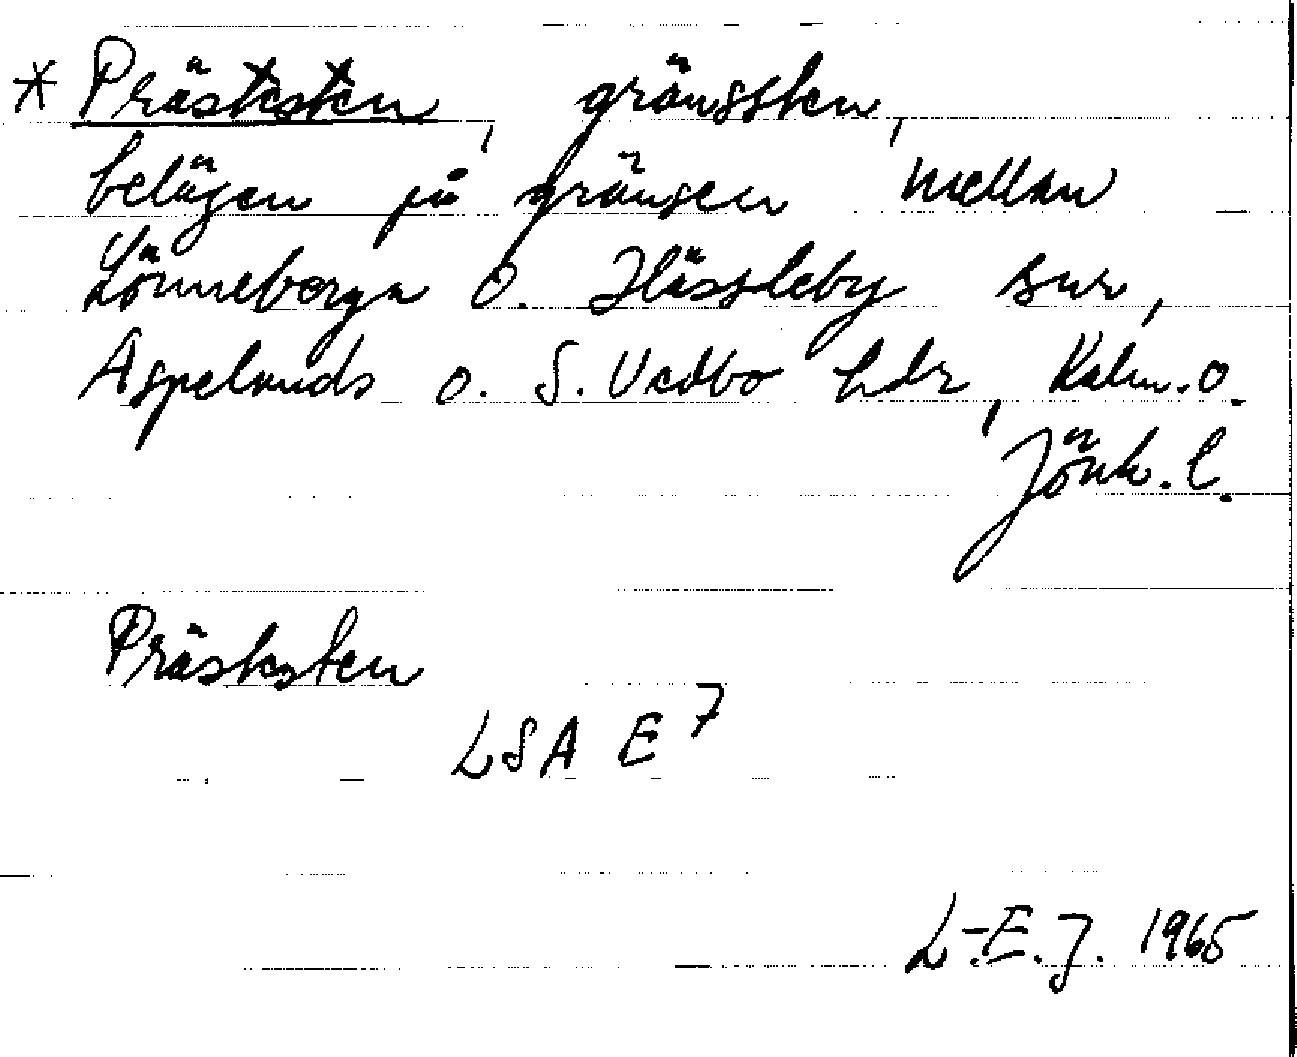 * Prästesten, gränssten,
belägen på gränsen mellan
Lönneberga o. Hässleby snr,
Aspelands o. S. Vedbo hdr, Kalm. o.
Jönk. l.
Prästesten
LSA E 7
L-E. J. 1965